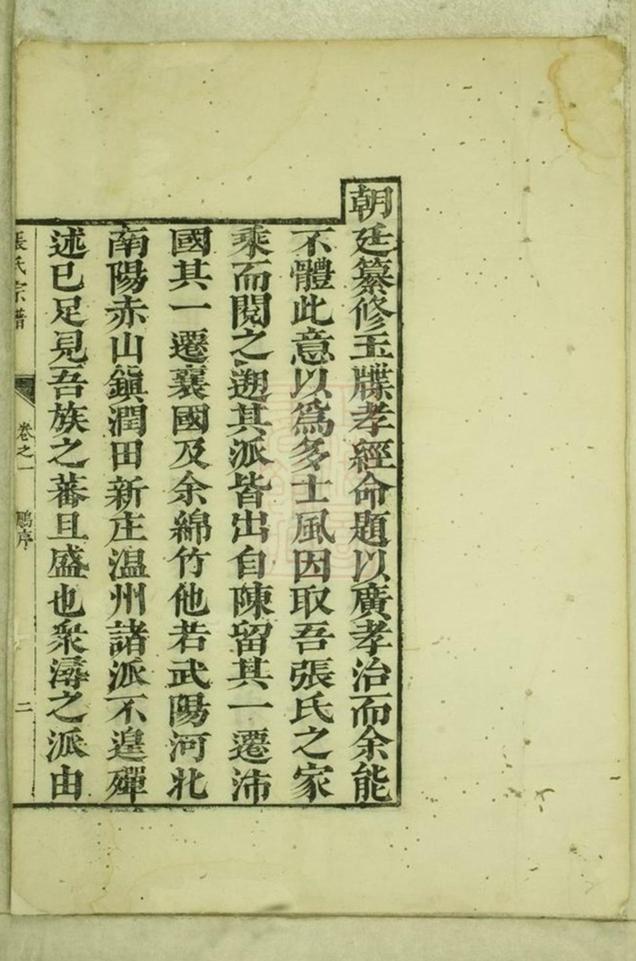 朝廷纂修玉牒孝經命題以廣孝治而余能
不體此意以爲多士風因取吾張氏之家
乘而閱之遡其派皆出自陳留其一遷沛
國其一遷襄國及余綿竹他若武陽河北
南陽赤山鎮潤田新庄温州諸派不遑殫
述已足見吾族之蕃且盛也衆潯之派由
張氏宗譜
卷之一
鵬序
二